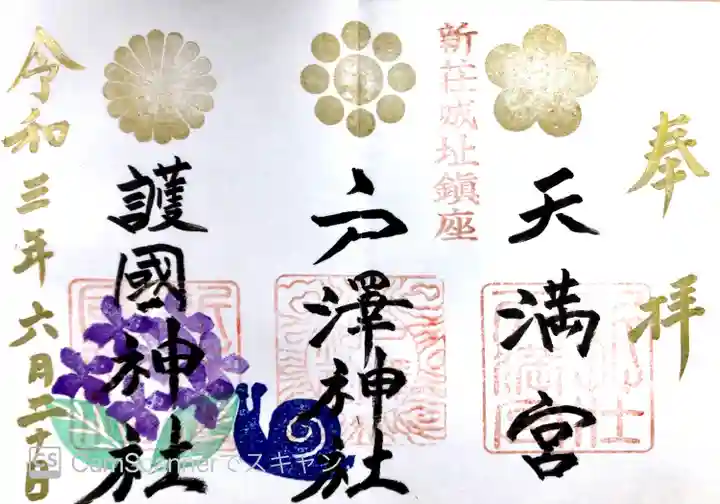 奉拝
天満宮
新荘城址鎮座
戸澤神社
護國神社
令和三年六月二十日
CS CamScannerでスキャン